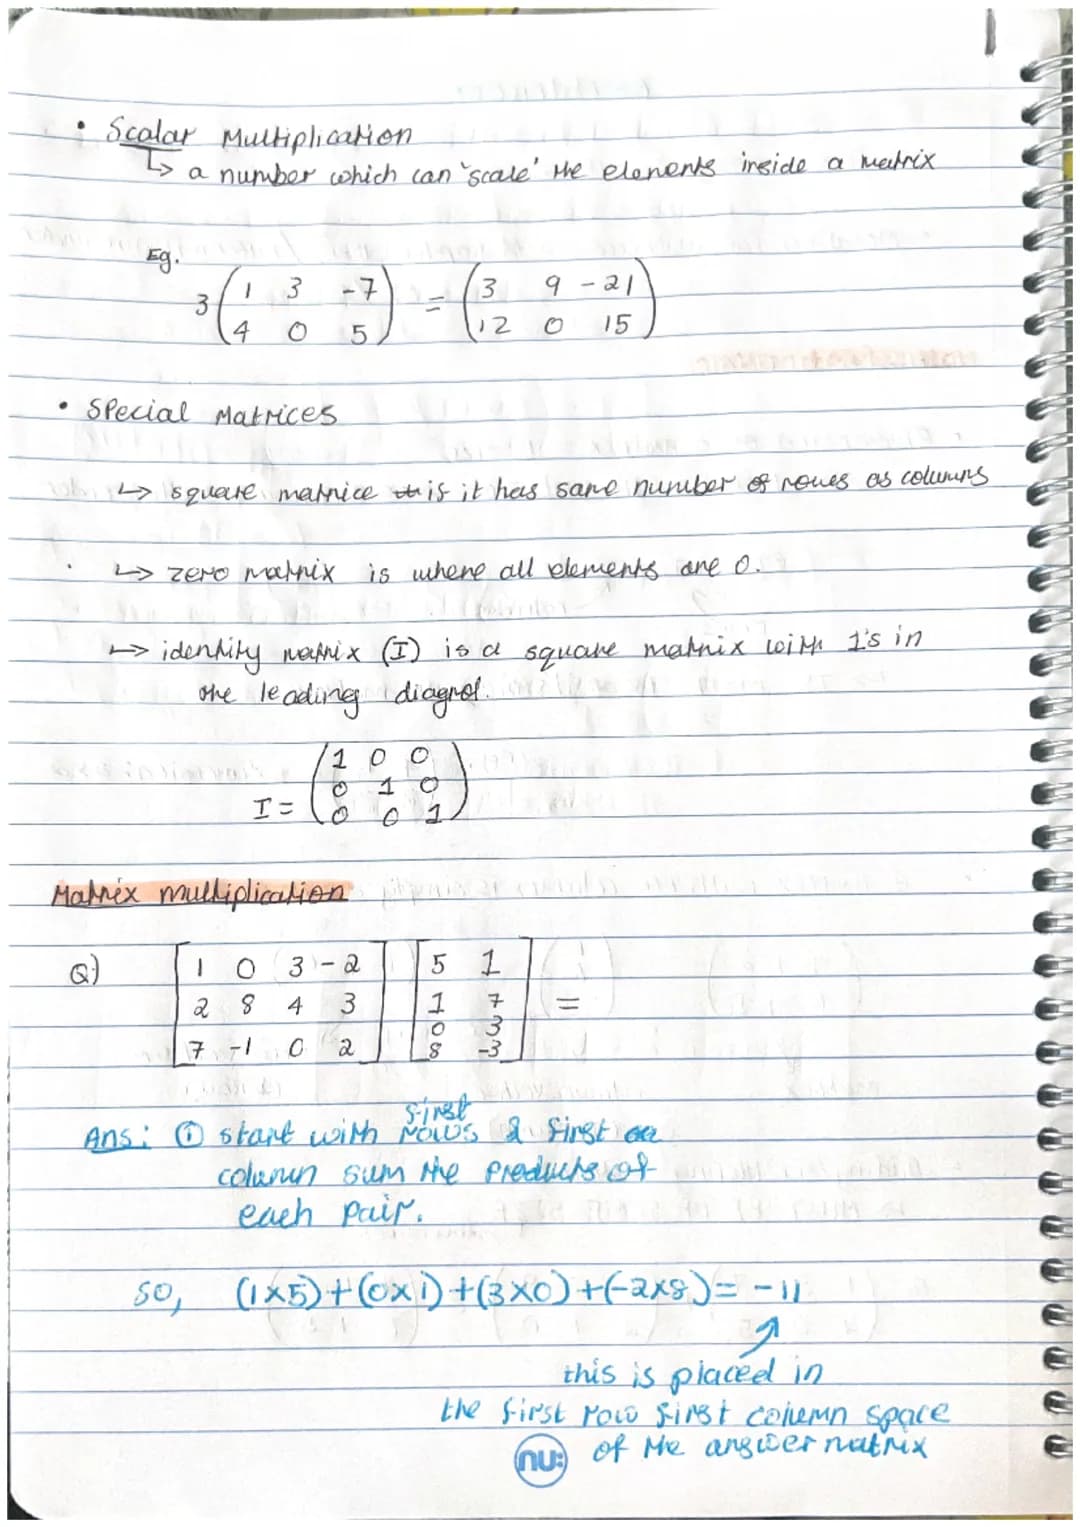 • Scalar Multiplication
↳ a number which can 'scale' the elements inside a matrix
Eg.
3 ( 1 3 -7 ) = ( 3 9 -21 )
( 4 0 5 ) ( 12 0 15 )
• Special Matrices
↳ square matrice is it has same number of rows as columns
↳ zero matrix is where all elements are 0.
↳ identity matrix (I) is a square matrix with 1's in
the leading diagnol.
( 1 0 0 )
( 0 1 0 )
I = ( 0 0 1 )
Matrix multiplication
Q) [ 1 0 3 -2 ] [ 5 1 ]
[ 2 8 4 3 ] [ 1 7 ] =
[ 0 3 ]
[ 7 -1 0 2 ] [ 8 -3 ]
first
Ans: ① start with rows & first
column sum the products of
each pair.
so, (1×5)+(0×1)+(3×0)+(-2×8)= -11
this is placed in
the first row first column space
of the answer matrix
nu: